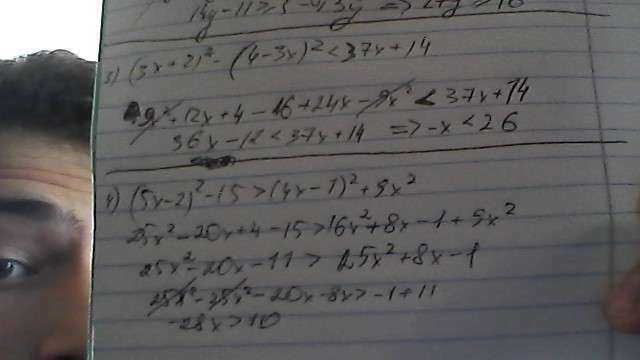 3) (3x+2)² - (4-3x)² < 37x+14
9x²+12x+4-16+24x-9x² < 37x+14
36x-12 < 37x+14 => -x < 26
4) (5x-2)²-15 > (4x-1)²+9x²
25x²-20x+4-15 > 16x²+8x-1+9x²
25x²-20x-11 > 25x²+8x-1
25x²-25x²-20x-8x > -1+11
-28x > 10